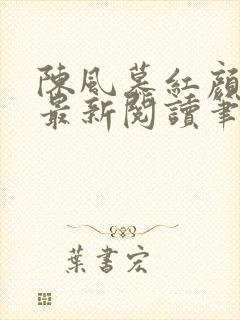 陳風慕紅顏
最新閱讀筆
葉書宏